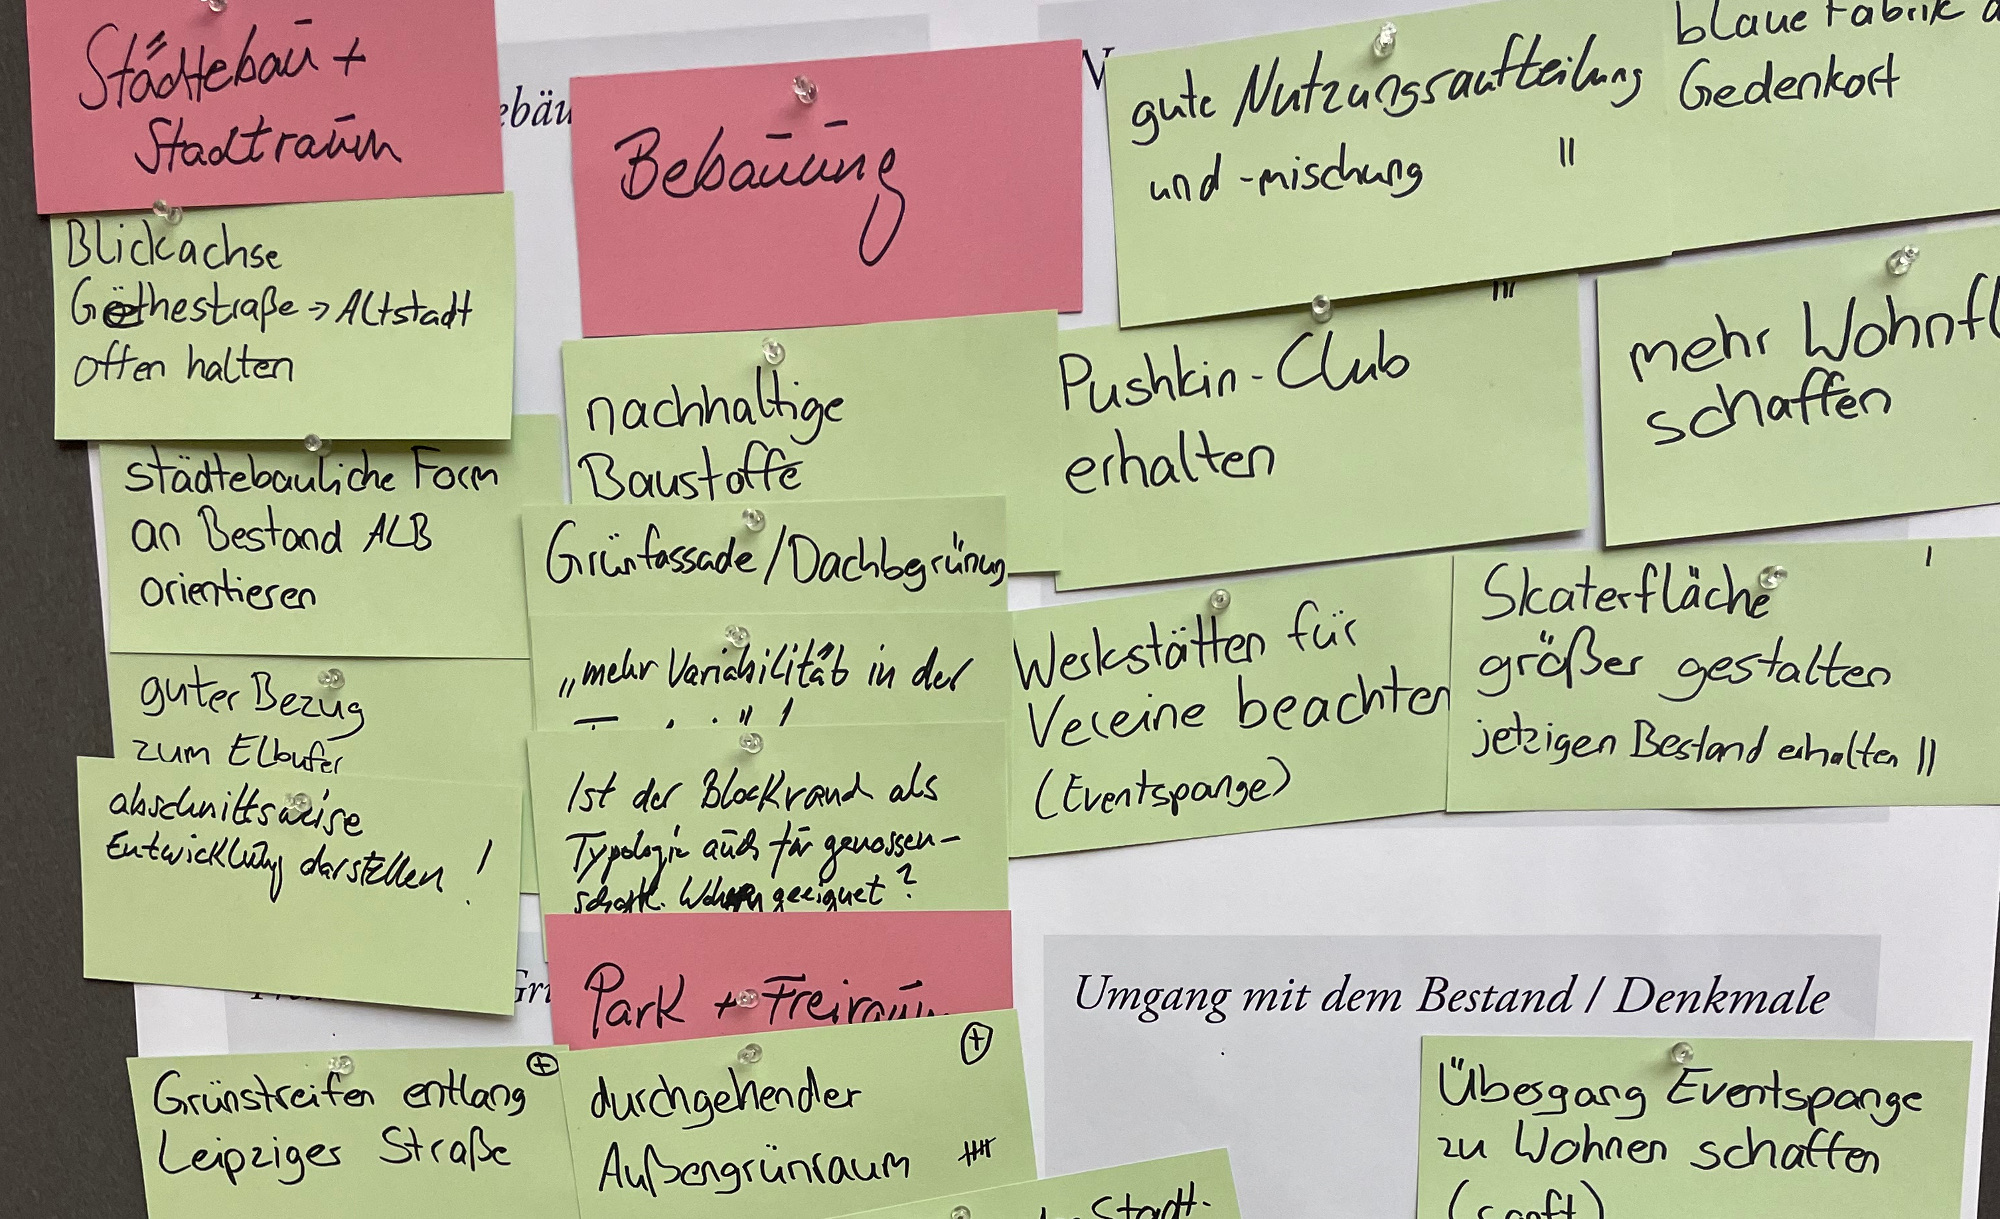 Städtebau +
Stadtraum
Blickachse
Goethestraße → Altstadt
offen halten
städtebauliche Form
an Bestand ALB
orientieren
guter Bezug
zum Elbufer
abschnittsweise
Entwicklung darstellen !
Bebauung
nachhaltige
Baustoffe
Grünfassade/Dachbegrünung
„mehr Variabilität in der
Ist der Blockrand als
Typologie auch für genossen-
schaftl. Wohnen geeignet?
gute Nutzungsaufteilung
und -mischung II
blaue Fabrik
Gedenkort
Pushkin-Club III
erhalten
mehr
schaffen
Werkstätten für
Vereine beachten
(Eventspange)
Skaterfläche I
größer gestalten
jetzigen Bestand erhalten II
Park + Freiraum
Grünstreifen entlang +
Leipziger Straße
durchgehender +
Außengrünraum IIII
Stadt-
Umgang mit dem Bestand / Denkmale
Übergang Eventspange
zu Wohnen schaffen
(sanft)